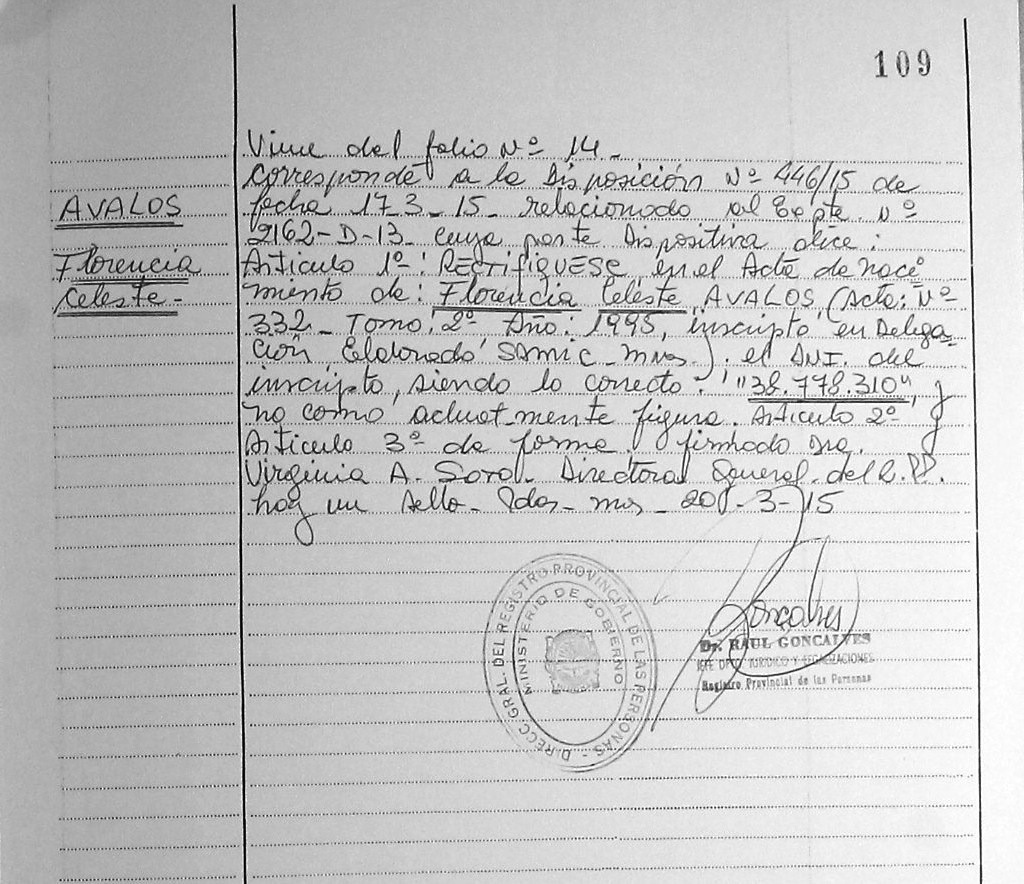 109
Viene del folio Nº 14.-
Corresponde a la Disposición Nº 446/15 de
fecha 17-3-15- relacionado al Expte. Nº
2162-D-13- Cuya parte Dispositiva dice:
Articulo 1º: RECTIFIQUESE, en el Acta de naci
miento de: Florencia Celeste AVALOS (Acta: Nº
332- Tomo: 2º Año: 1995, inscripto en Delega
ción Eldorado SAMIC- mns.). el DNI. del
inscripto, siendo lo correcto: "38.778.310" y
no como actualmente figura. Articulo 2º
Articulo 3º de forma. firmado Dra.
Virginia A. Soro- Directora General. del R.PP.
hay un sello- Pdas- mns- 20-3-15
AVALOS
Florencia
Celeste-
DIRECC. GRAL. DEL REGISTRO PROVINCIAL DE LAS PERSONAS -
MINISTERIO DE GOBIERNO
Goncalves
Dr. RAUL GONCALVES
JEFE DPTO. JURIDICO Y LEGALIZACIONES
Registro Provincial de las Personas